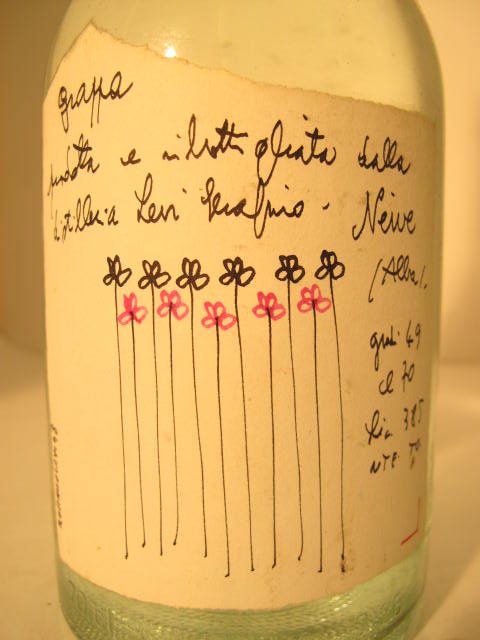 grappa
prodotta e imbottigliata dalla
distilleria Levi Serafino. Neive
(Alba).
gradi 49
cl 70